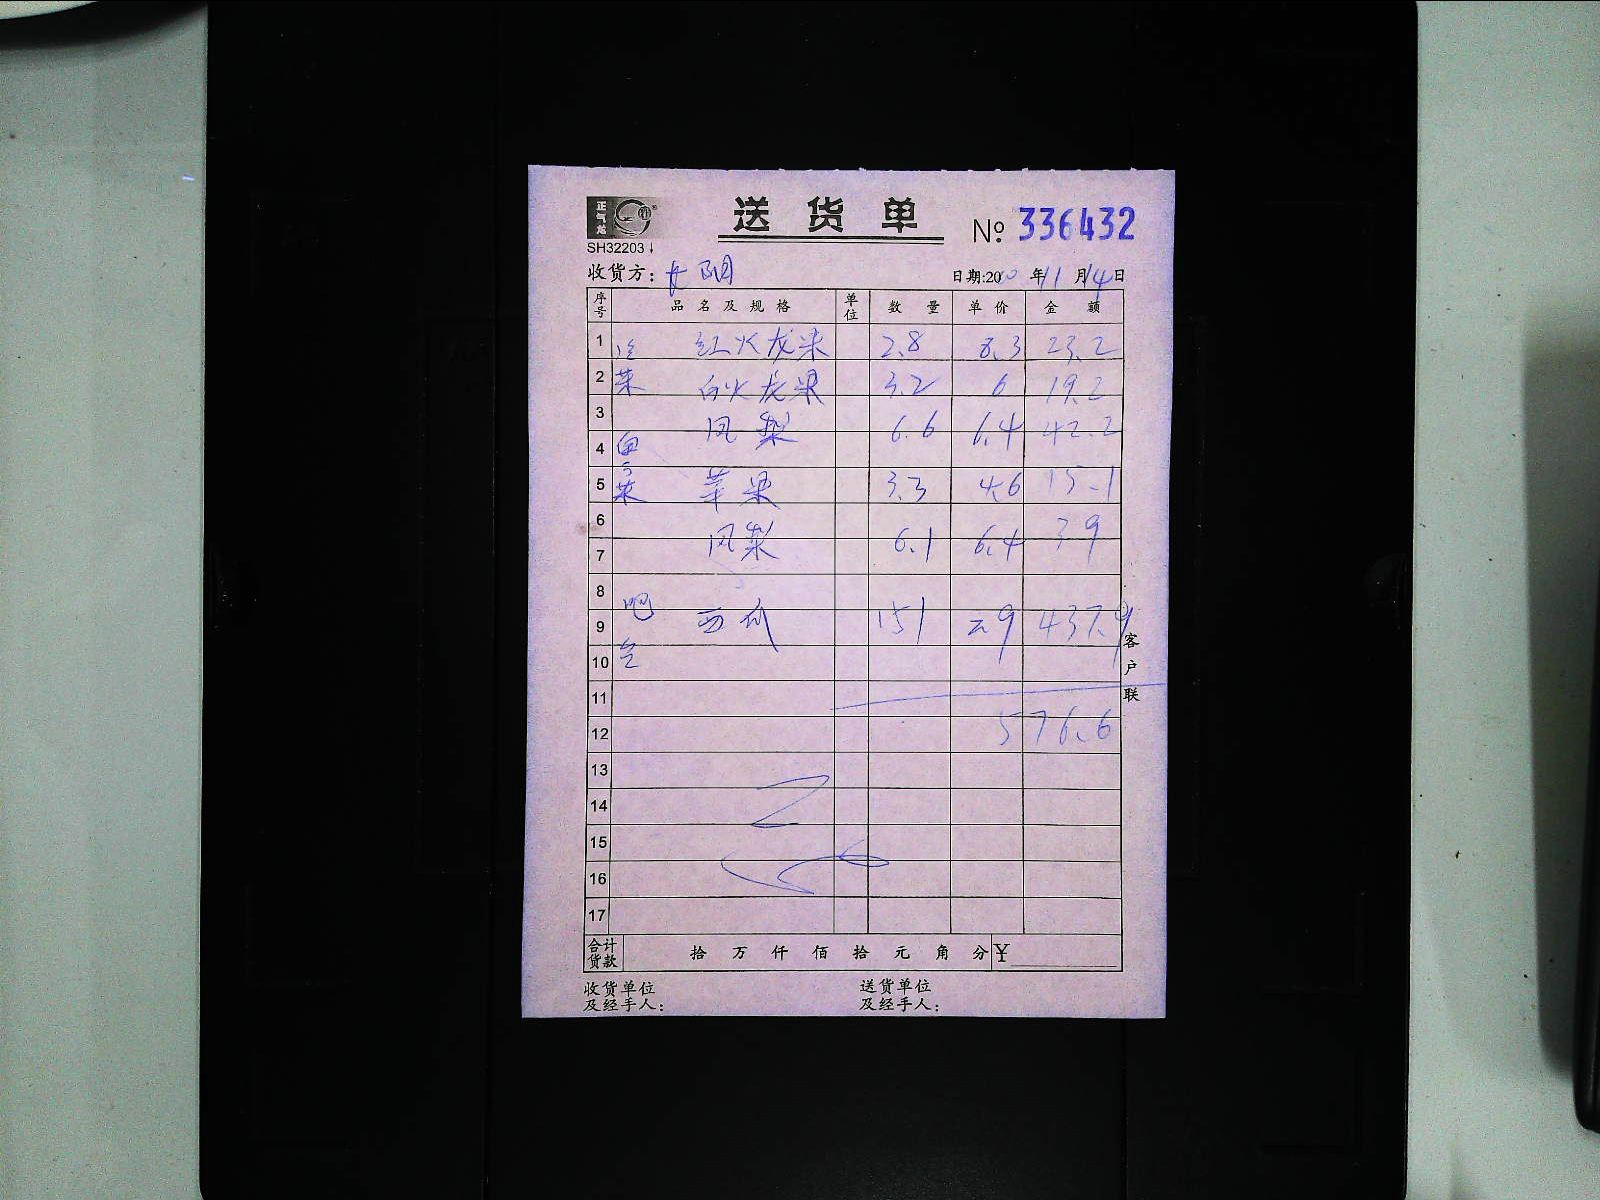 正气龙
送货单 № 336432
SH32203↓
收货方：
日期:20 年11月14日
序号 品名及规格 单位 数量 单价 金额
1 红火龙果 2.8 8.3 23.2
2 菜 白火龙果 3.2 6 19.2
3 凤梨 6.6 6.4 42.2
4
5 苹果 3.3 4.6 15.1
6 凤梨 6.1 6.4 39
7
8 吧
9 西瓜 151 2.9 437.9
10 台
11
12 576.6
13
14
15
16
17
客户联
合计货款 拾万仟佰拾元角分¥
收货单位及经手人： 送货单位及经手人：